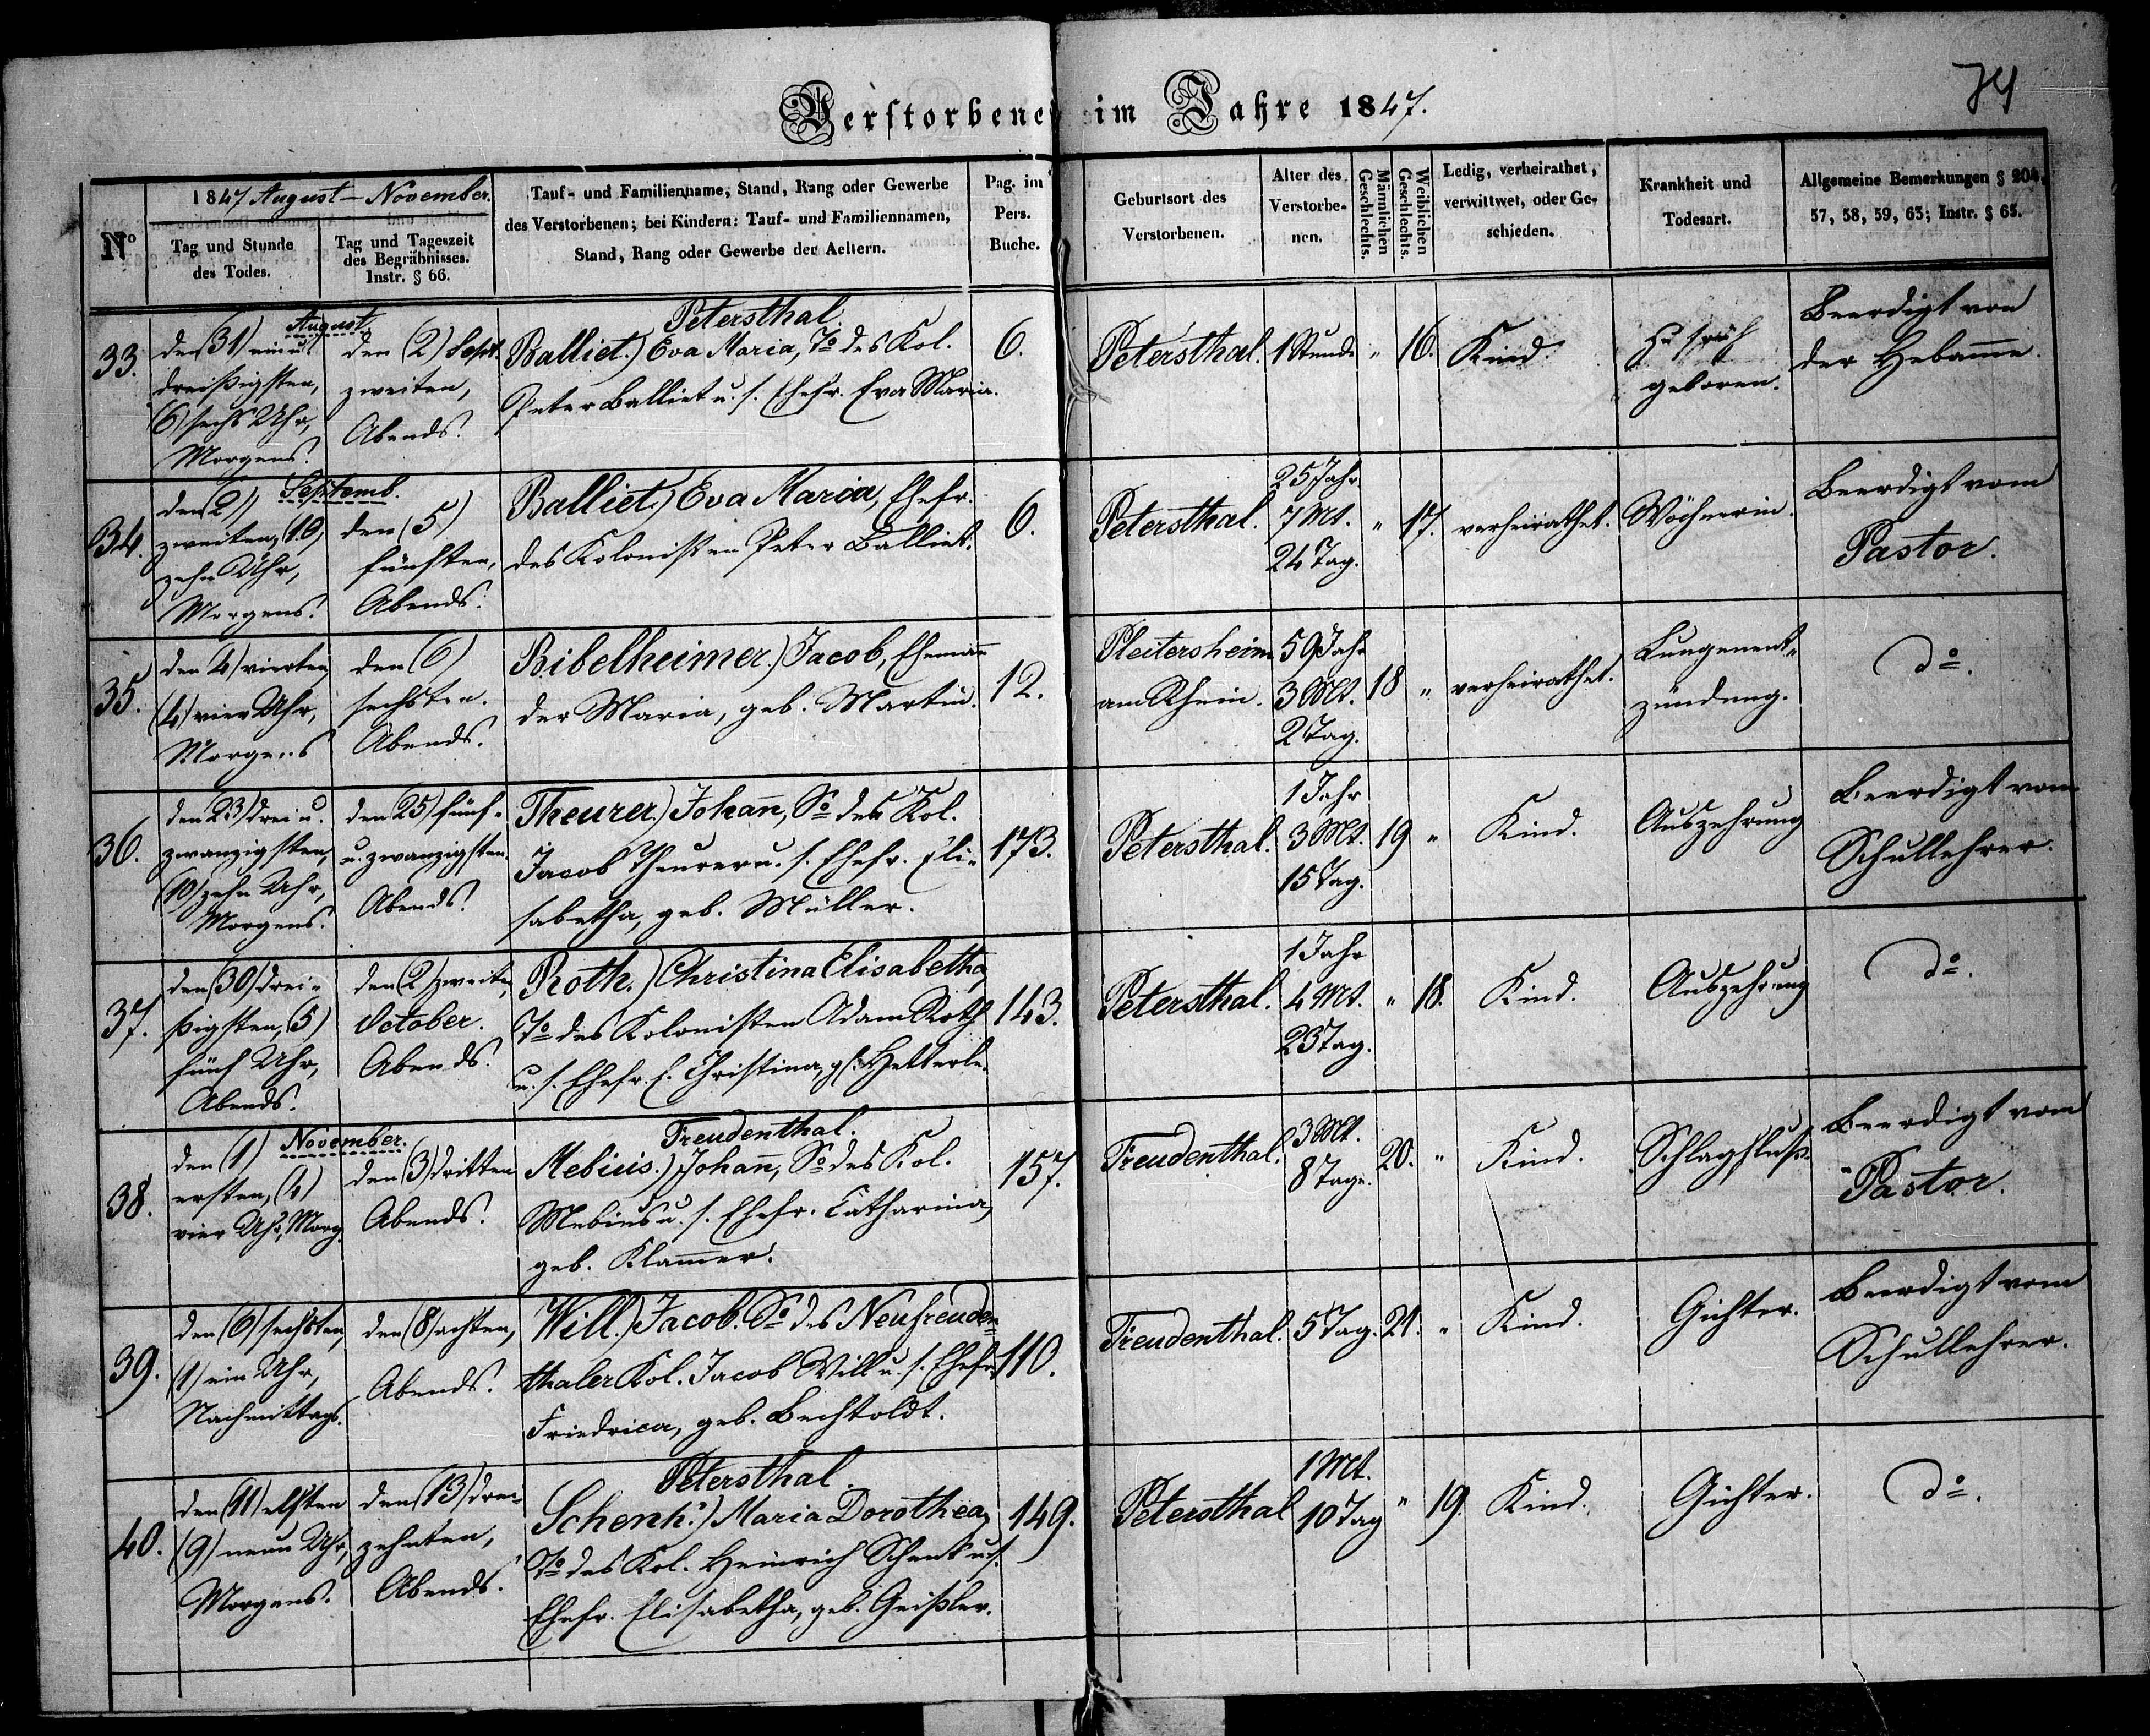 74
Verstorbene im Jahre 1847.
Nº
1847 August – November.
Tag und Stunde
des Todes.
Tag und Tageszeit
des Begräbnisses.
Instr. § 66.
Tauf- und Familienname, Stand, Rang oder Gewerbe
des Verstorbenen; bei Kindern: Tauf- und Familiennamen,
Stand, Rang oder Gewerbe der Aeltern.
Pag. im
Pers.
Buche.
Geburtsort des
Verstorbenen.
Alter des
Verstorbe-
nen.
Männlichen
Geschlechts.
Weiblichen
Geschlechts.
Ledig, verheirathet,
verwittwet, oder Ge-
schieden.
Krankheit und
Todesart.
Allgemeine Bemerkungen § 204,
57, 58, 59, 63; Instr. § 65.
33.
August.
den (31) ein u.
dreißigsten,
(6) sechs Uhr,
Morgens.
den (2) Sept.
zweiten,
Abends.
Petersthal.
Balliet.) Eva Maria, To des Kol.
Peter Balliet u. s. Ehefr. Eva Maria.
6.
Petersthal.
1 Stunde
"
16.
Kind.
Zu früh
geboren.
Beerdigt von
der Hebam̄e.
34.
Septemb.
den (2)
zweiten, (10)
zehn Uhr,
Morgens.
den (5)
fünften,
Abends.
Balliet.) Eva Maria, Ehefr.
des Kolonisten Peter Balliet.
6.
Petersthal.
25 Jahr
7 Mt.
24 Tag.
"
17.
verheirathet.
Wöchnerin.
Beerdigt vom
Pastor.
35.
den 4) vierten
(4) vier Uhr,
Morgens
den (6)
sechsten.
Abends.
Bibelheimer.) Jacob, Ehemañ
der Maria, geb. Martin.
12.
Pleitersheim
am Rhein.
59 Jahr
3 Mt.
2 Tag.
18
"
verheirathet.
Lungenent-
zündung.
do.
36.
den 23) drei u.
zwanzigsten,
(10) zehn Uhr,
Morgens.
den (25) fünf-
u. zwanzigsten.
Abends.
Theurer.) Johañ, So des Kol.
Jacob Theurer u. s. Ehefr. Eli-
sabetha, geb. Müller.
173.
Petersthal.
1 Jahr
3 Mt.
15 Tag.
19
"
Kind.
Auszehrung
Beerdigt vom
Schullehrer.
37.
den (30) drei-
ßigsten, (5)
fünf Uhr,
Abends.
den (2) zweiten,
October.
Abends.
Roth.) Christina Elisabetha,
To des Kolonisten Adam Roth
u. s. Ehefr. E. Christina, gb. Hetterle.
143.
Petersthal.
1 Jahr
4 Mt.
23 Tag.
"
18.
Kind.
Auszehrung
do.
38.
November.
den (1)
ersten, (4)
vier Uhr, Morg.
den (3) dritten
Abends.
Freudenthal.
Mebius.) Johañ, So des Kol.
Mebius u. s. Ehefr. Catharina,
geb. Klam̄er.
157.
Freudenthal.
3 Mt.
8 Tage.
20.
"
Kind.
Schlagfluß.
Beerdigt vom
Pastor.
39.
den (6) sechsten,
(1) ein Uhr,
Nachmittags.
den (8) achten,
Abends.
Will.) Jacob. So des Neufreuden-
thaler Kol. Jacob Will u. s. Ehefr.
Friedrica, geb. Bechtoldt.
110.
Freudenthal.
5 Tag.
21.
"
Kind.
Gichter.
Beerdigt vom
Schullehrer.
40.
den (11) elften
(9) neun Uhr,
Morgens.
den (13) drei-
zehnten,
Abends.
Petersthal.
Schenk.) Maria Dorothea,
To des Kol. Heinrich Schenk u. s.
Ehefr. Elisabetha, geb. Geißler.
149.
Petersthal
1 Mt.
10 Tag
"
19.
Kind.
Gichter.
do.